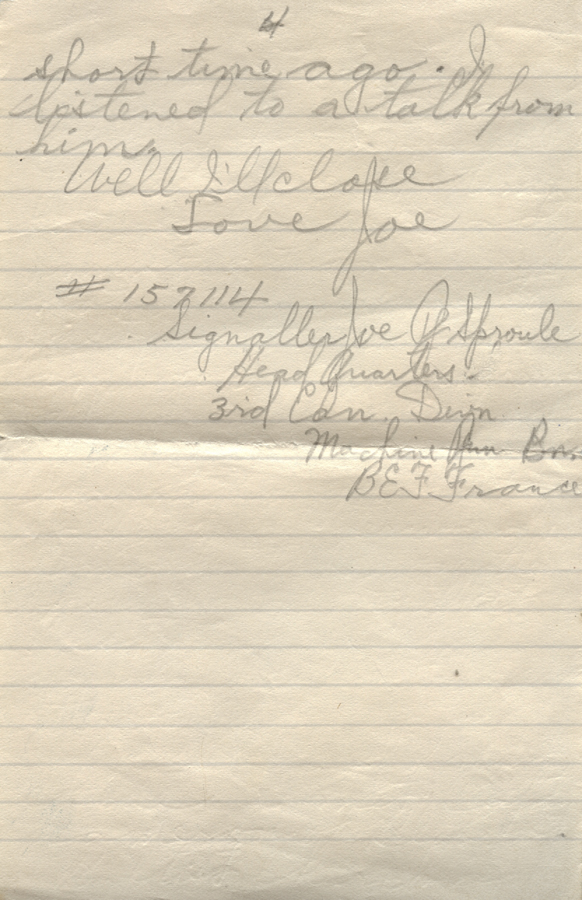 4
short time ago. I
listened to a talk from
him.
Well I'll close
Love Joe
# 157114
Signaller Joe P Sproule
Head Quarters.
3rd Can. Divn
Machine Gun Bn
B E F France